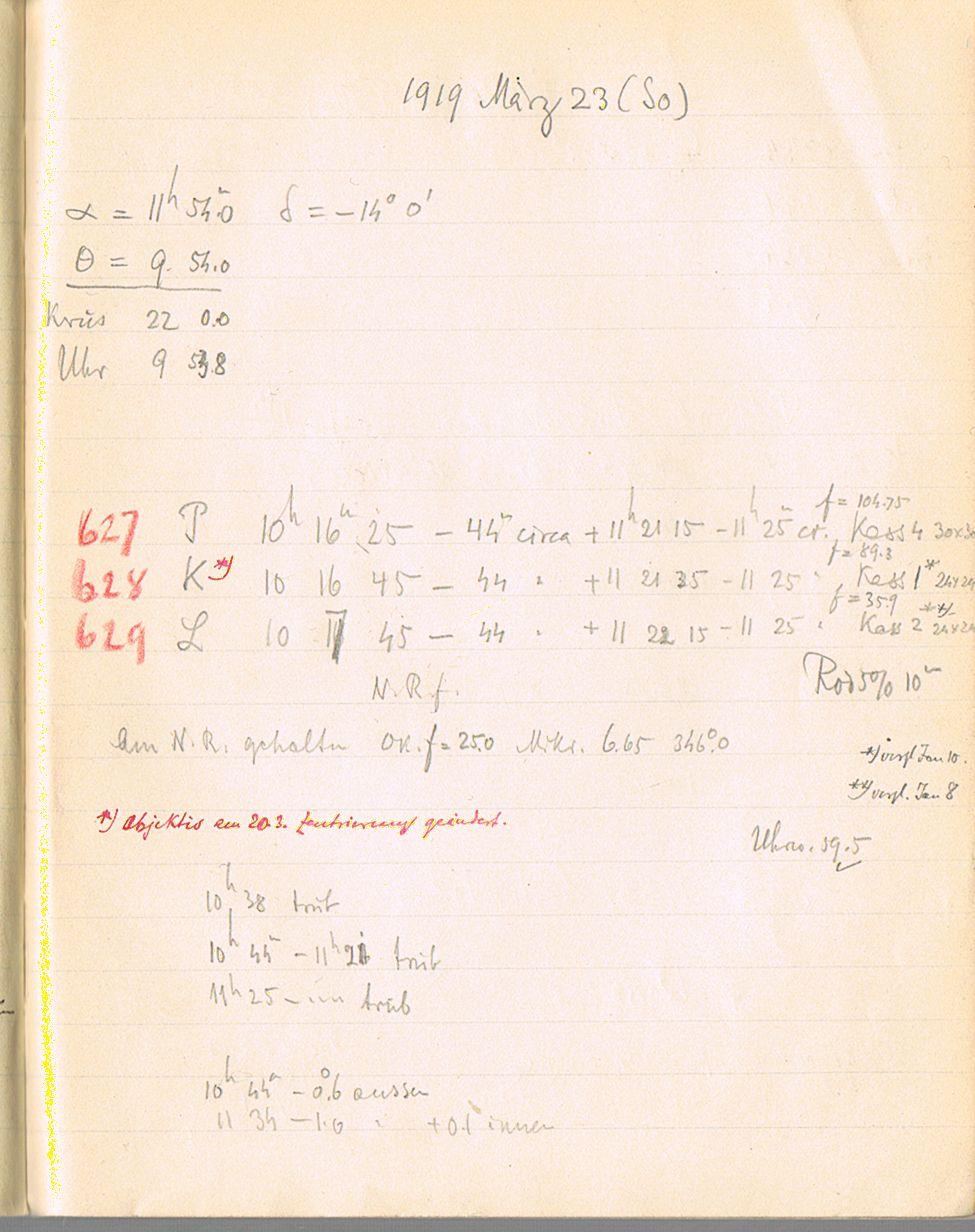 1919 März 23 (So)
α = 11h 54m.0 δ = -14° 0'
θ = 9 54.0
Krüs 22 0.0
Uhr 9 53.8
f = 104.75
627 P 10h 16m 25 - 44m circa + 11h 21 15 - 11h 25m cr. Kass 4 30x30
f = 89.3
628 K*) 10 16 45 - 44 " + 11 21 35 - 11 25 " Kass 1* 24x24
f = 35.9
629 L 10 17 45 - 44 " + 11 22 15 - 11 25 " Kass 2**) 24x24
N.R.f. Rod 5% 10m
Am N.R. gehalten Ok. f = 25.0 Mikr. 6.65 346°.0
*) vergl Jan 10.
**) vergl. Jan 8
*) Objektiv am 20.3. Zentrierung geändert.
Uhrv. 59.5
10h 38 trüb
10h 45m - 11h 21 trüb
11h 25 - trüb
10h 44m - 0°.6 aussen
11 34 - 1.0 " + 0.1 innen